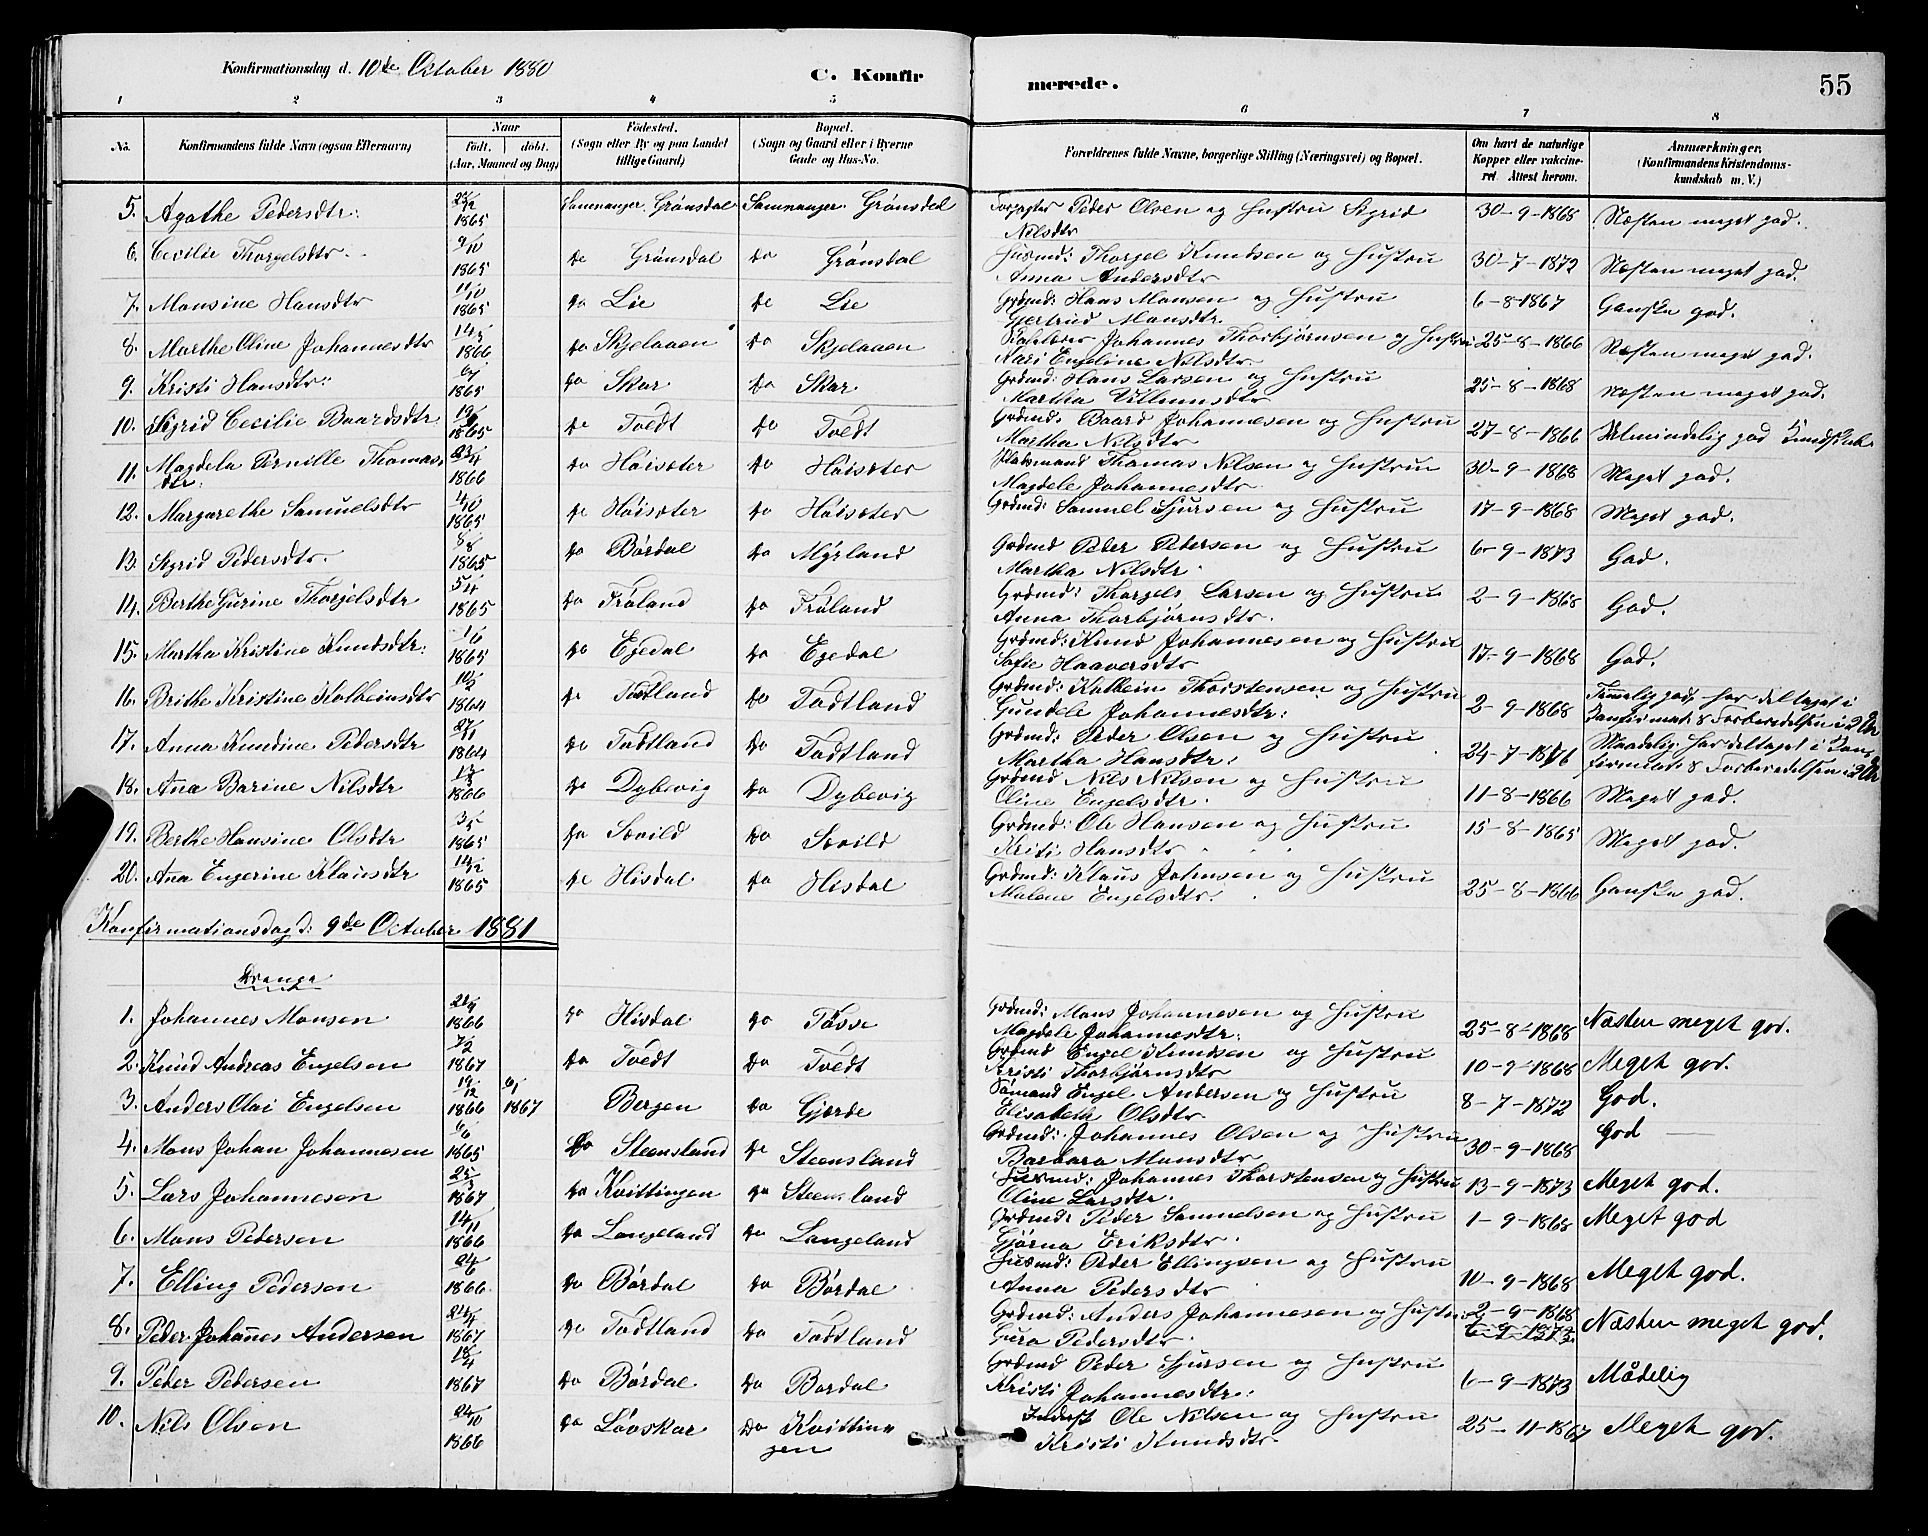 Konfirmationsdag d. 10de October 1880 C. Konfirmerede. 55
1 2 3 4 5 6 7 8
No. Konfirmandens fulde Navn (ogsaa Efternavn) Naar født. døbt. (Aar, Maaned og Dag) Fødested. (Sogn eller By og paa Landet tillige Gaard) Bopæl. (Sogn og Gaard eller i Byerne Gade og Hus-No.) Forældrenes fulde Navne, borgerlige Stilling (Næringsvei) og Bopæl. Om havt de naturlige Kopper eller vakcineret Attest herom. Anmærkninger. (Konfirmandens Kristendomskundskab m. V.)
5. Agathe Pedersdtr: 1865 Samnanger Grønsdal Samnanger Grønsdal Peder Olsen og Hustru Sigrid Nilsdtr 30-9-1868 Næsten meget god.
6. Cecilie Thorgelsdtr. 9/10 1865 Do Grønsdal Do Grønsdal Husmd: Thorgel Knudsen og Hustru Anna Andersdtr 30-7-1872 Næsten meget god.
7. Monsine Hansdtr 11/10 1865 Do Lie Do Lie Grdmd: Hans Monsen og Hustru Gjertrud Monsdtr. 6-8-1867 Ganske god.
8. Marthe Oline Johannesdtr 14/3 1866 Do Skjelaaen Do Skjelaaen Johannes Thorbjørnsen og Hustru Kari Engeline Nilsdtr 25-8-1866 Næsten meget god.
9. Kristi Hansdtr: 1865 Do Skar Do Skar Grdmd: Hans Larsen og Hustru Martha Villumsdtr 25-8-1868 Næsten meget god.
10. Sigrid Cecilie Baardsdtr 1865 Do Tvedt Do Tvedt Grdmd: Baard Johannesen og Hustru Martha Nilsdtr 27-8-1866 Almindelig god Kundskab
11. Magdela Pernille Thomasdtr: 23/4 1866 Do Høisæter Do Høisæter Pladsmand Thomas Nilsen og Hustru Magdele Johannesdtr 30-9-1868 Meget god.
12. Margarethe Samuelsdtr 4/10 1865 Do Høisæter Do Høisæter Grdmd: Samuel Sjursen og Hustru 17-9-1868 Meget god.
13. Sigrid Pedersdtr. 8/8 1865 Do Børdal Do Myrland Grdmd Peder Pedersen og Hustru Martha Nilsdtr 6-9-1873 God.
14. Berthe Gurine Thorgelsdtr 5/4 1865 Do Frøland Do Frøland Grdmd: Thorgels Larsen og Hustru Anna Thorbjørnsdtr. 2-9-1868 God.
15. Martha Kristine Knudsdtr: 1/6 1865 Do Egedal Do Egedal Grdmd: Knud Johannesen og Hustru Sofie Haaversdtr 17-9-1868 God.
16. Brithe Kristine Kolbeinsdtr 10/2 1864 Do Tødtland Do Tødtland Grdmd: Kolbein Thorstensen og Hustru Gundele Johannesdtr: 2-9-1868 Temmelig god, har deltaget i Konfirmats Forberedelsen i 2 Aar
17. Anna Knudine Pedersdtr 27/11 1864 Do Tødtland Do Tødtland Grdmd: Peder Olsen og Hustru Martha Hansdtr: 24-7-1876 Maadelig. har deltaget i Konfirmats Forberedelsen i 2 Aar
18. Ana Barine Nilsdtr 1866 Do Dybevig Do Dybevig Grdmd Nils Nilsen og Hustru Oline Engelsdtr. 11-8-1866 Meget god.
19. Berthe Hansine Olsdtr 3/5 1865 Do Sævild Do Sævild Grdmd: Ole Hansen og Hustru Kristi Hansdtr 15-8-1865 Meget god.
20. Ana Engerine Klausdtr 14/12 1865 Do Hisdal Do Hisdal Grdmd: Klaus Johnsen og Hustru Malene Engelsdtr. 25-8-1866 Ganske god.
Konfirmationsdag d: 9de October 1881
Drenge
1. Johannes Monsen 1866 Do Hisdal Do Tøsse Grdmd: Mons Johannesen og Hustru Magdele Johannesdtr: 25-8-1868 Næsten meget god.
2. Knud Andreas Engelsen 1867 Do Tvedt Do Tvedt Grdmd Engel Knudsen og Hustru Kristi Thorbjørnsdtr 10-9-1868 Meget god.
3. Anders Olai Engelsen 19/12 1866 6/1 1867 Bergen Do Gjerde Sømand Engel Andersen og Hustru Elisabeth Olsdtr 8-7-1872 God.
4. Mons Johan Johannesen 1865 Do Steensland Do Steensland Grdmd: Johannes Olsen og Hustru Barbara Monsdtr 30-9-1868 God
5. Lars Johannesen 25/3 1867 Do Kvittingen Do Steensland Husmd: Johannes Thorstensen og Hustru Oline Larsdtr. 13-9-1873 Meget god.
6. Mons Pedersen 14/11 1866 Do Langeland Do Langeland Grdmd: Peder Samuelsen og Hustru Gjørna Eriksdtr. 1-9-1868 Meget god
7. Elling Pedersen 24/6 1866. Do Børdal Do Børdal Husmd: Peder Ellingsen og Hustru Anna Pedersdtr 10-9-1868 Meget god.
8. Peder Johannes Andersen 24/4 1867 Do Tødtland Do Tødtland Grdmd: Anders Johannesen og Hustru Guro Pedersdtr. 2-9-1868 6-9-1873 Næsten meget god.
9. Peder Pedersen 18/4 1867 Do Børdal Do Børdal Grdmd Peder Sjursen og Hustru Kristi Johannesdtr: 6-9-1873 Mådelig
10. Nils Olsen 24/10 1866 Do Løvskar Do Kvittingen Inderst Ole Nilsen og Hustru Kristi Knudsdtr. 25-11-1867 Meget god.